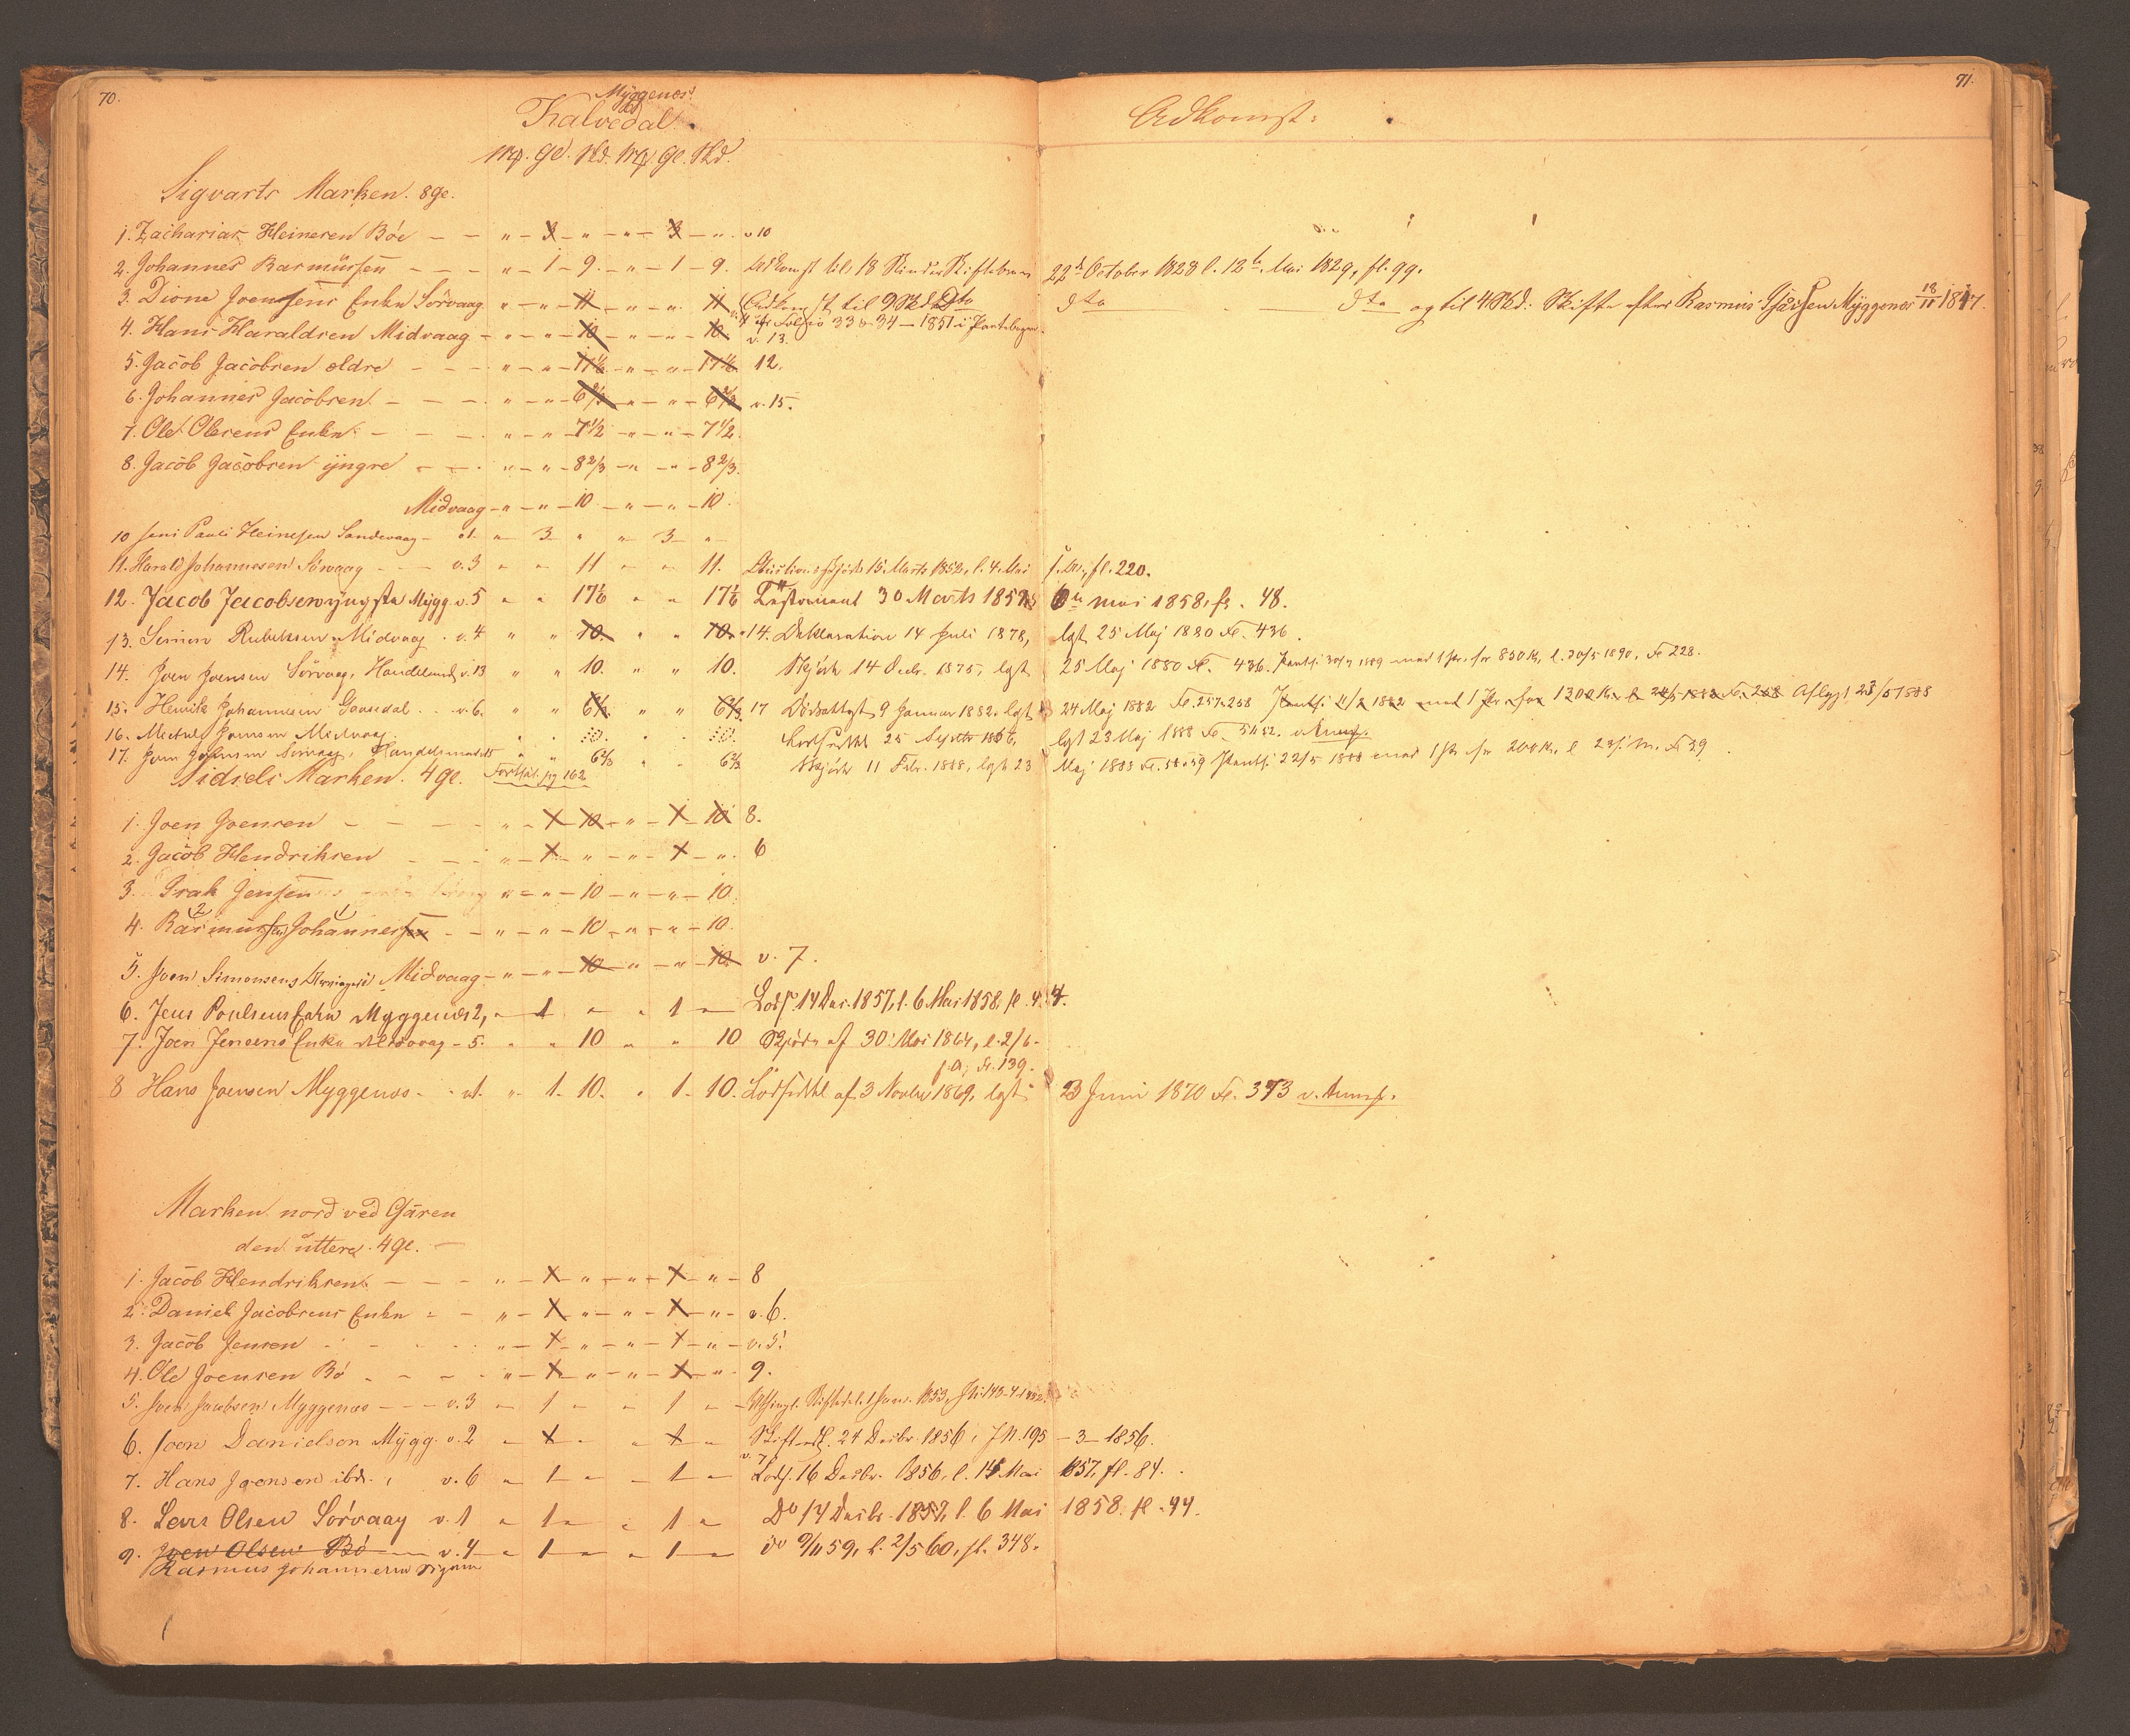 70.
71.
Myggenæs
Kalvedal.
Adkomst:
Mk. Gl. Skd. Mk. Gl. Skd.
Sigvarts Marken. 8 Gl.
1. Zacharias Heinesen Böe — — „ — 3 — „ — „ — 3 — „ v. 10
2. Johannes Rasmussen — — — „ — 1 — 9. — „ — 1 — 9. Adkomst til 18 Skinder Skiftebrev 22de October 1828 l. 12te Mai 1829, fl. 99.
3. Dione Joensens Enke Sörvaag „ — „ — 11 — „ — „ — 11 Adkomst til 9 Skd. Dto dto dto og til 4 Skd. Skifte efter Rasmus Myggenæs 18/11 1847.
4. Hans Haraldsen Midvaag — „ — „ — 10 — „ — „ — 10 Folio 33 & 34 — 1851 i Pantebogen v. 13.
5. Jacob Jacobsen ældre — — — „ — „ — 17 1/6 — „ — „ — 17 1/6 12.
6. Johannes Jacobsen — — — „ — „ — 6 2/3 — „ — „ — 6 2/3 v. 15.
7. Ole Olesens Enke — — — „ — „ — 7 1/2 — „ — „ — 7 1/2.
8. Jacob Jacobsen yngre — — „ — „ — 8 2/3 — „ — „ — 8 2/3.
Midvaag — „ — „ — 10 — „ — „ — 10.
10 Jens Pauli Heinesen Sandevaag — v. 1. „ 3 „ „ 3 „
11. Harald Johannesen Sörvaag — — v. 3 „ „ 11 „ „ 11. Auctionsskjöde 15 Marts 1852, l. 4 Mai s. A., fl. 220.
12. Jacob Jacobsen yngste Mygg. v. 5 „ „ 17 1/6 „ „ 17 1/6 Testament 30 Marts 1857, 6te mai 1858, fl. 48.
13. Simon Rubeksen Midvaag v. 4 „ „ 10. „ „ 10. v. 14. Deklaration 14 Juli 1878, lgt 25 Maj 1880 Fl. 436.
14. Joen Joensen Sörvaag, Handelsmd. v. 13 „ „ 10. „ „ 10. Skjöde 14 Decbr. 1875, lgst 25 Maj 1880 Fl. 436. Pantf. 30/9 1889 med 1 Pr. for 850 Kr., l. 20/5 1890. Fl 228.
15. Henrik Johannesen Gaasedal . . v. 6. „ „ 6 2/3 „ „ 6 2/3. 17 Dödsattest 9 Januar 1882. lgst 24 Maj 1882 Fl. 257-258 Pantf. 11/2 1882 med 1 Pr. for 1300 Kr. l. 24/5 1882 Fl. 258 Aflyst 23/5 1888
16. Michal Joensen Midvaag „ „ 10. „ „ 10. Lodseddel 25 Septbr 1886, lgt 23 Maj 1888 Fl. 51 & 52. v. Anmf.
17. Joen Joensen Sörvaag, Handelsmand „ „ 6 2/3 „ „ 6 2/3 Skjöde 11 Febr. 1888, lgt 23 Maj 1888 Fl. 58 & 59 Pantf. 22/5 1888 med 1 Pr. for 200 Kr. l. 23/s. M. Fl 59
Sidsels Marken. 4 Gl. Fortsat. pg 162
1. Joen Joensen — — — — „ — 1 — 10 — „ — 1 — 10 8.
2. Jacob Hendriksen — — „ — 1 — „ — „ — 1 — „. 6
3. Jensen „ — „ — 10 — „ — „ — 10.
4. Rasmussen Johannes — — „ — „ — 10 — „ — „ — 10.
5. Joen Simonsens Midvaag — „ — „ — 10 — „ — „ — 10. v. 7.
6. Jens Poulsens Enke Myggenæs 2, — 1 „ „ 1 — Lods. 14 Dec. 1857, l. 6 Mai 1858, fl. 44.
7. Joen Jensens Enke Midvaag — 5. „ „ 10 „ „ 10 Skjöde af 30 Mai 1864, l. 2/6 s. A., Fl. 139.
8 Hans Joensen Myggenæs — v. 1. „ 1. 10. „ 1. 10. Lodseddel af 3 Novbr 1869, lgst 23 Juni 1870 Fl. 373 v. Anmf.
Marken nord ved Gåren
den uttere. 4 Gl. —
1. Jacob Hendriksen — — — „ — 1 — „ — „ — 1 — „ — 8
2. Daniel Jacobsens Enke — — „ — 1 — „ — „ — 1 — „ — v. 6.
3. Jacob Jensen „ — 1 — „ — „ — 1 — „ — v. 5.
4. Ole Joensen Bö . — — — „ — 1 — „ — „ — 1 — „. 9.
5. Joen Jacobsen Myggenæs — — — v. 3 „ 1 „ „ 1 „ Skiftedel. 1 Janr. 1853,
6. Joen Danielsen Mygg. v. 2 „ 1 „ „ 1 „ Skiftedl. 24 Decbr. 1856, J. N. 195 — 3 — 1856.
v. 7
7. Hans Joensen ibd., v. 6 „ 1 „ „ 1 „ Lods. 16 Decbr. 1856, l. 14 Mai 1857, fl. 84.
8. Lars Olsen Sörvaag v. 1 „ 1 „ „ 1 „ Do 14 Decbr. 1857, l. 6 Mai 1858. fl. 44.
9. Joen Olsen Bö — v. 4 „ 1 „ „ 1 „ do 9/11 59, l. 2/5 60, fl. 348.
Rasmus Johannesen